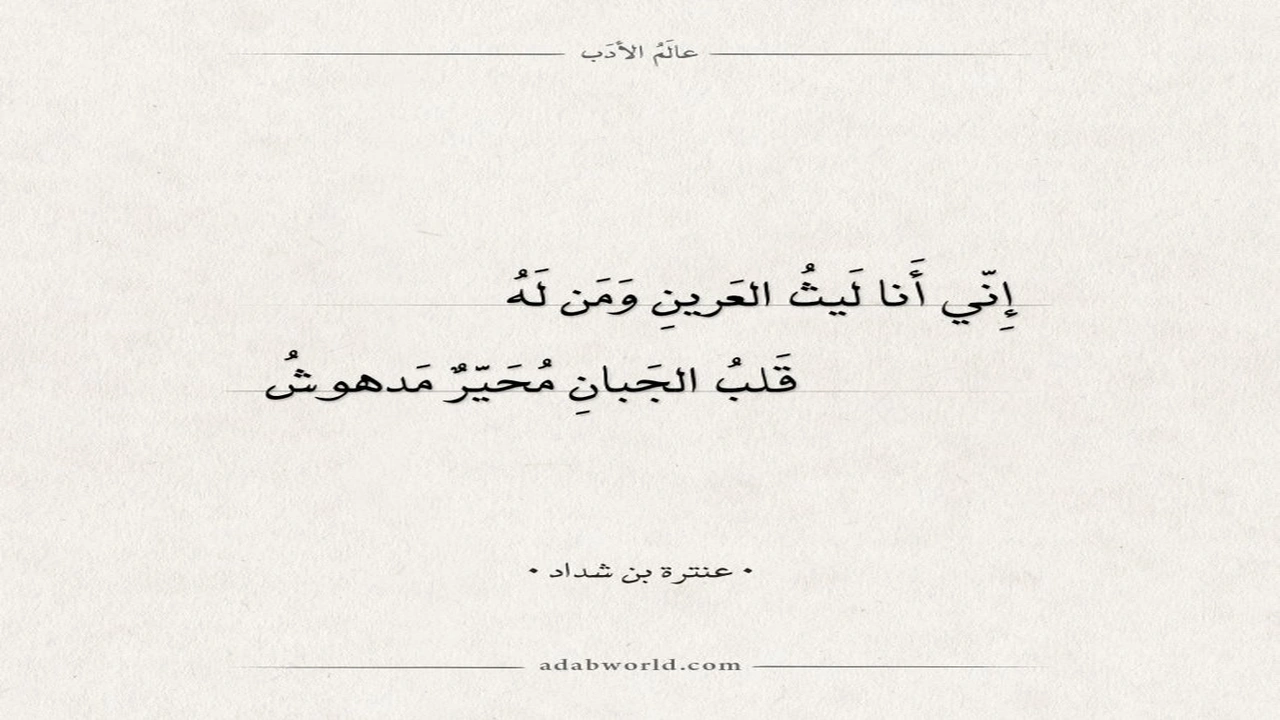 عالَمُ الأدَب
إِنّي أَنا لَيثُ العَرينِ وَمَن لَهُ
قَلبُ الجَبانِ مُحَيّرٌ مَدهوشُ
• عنترة بن شداد •
adabworld.com